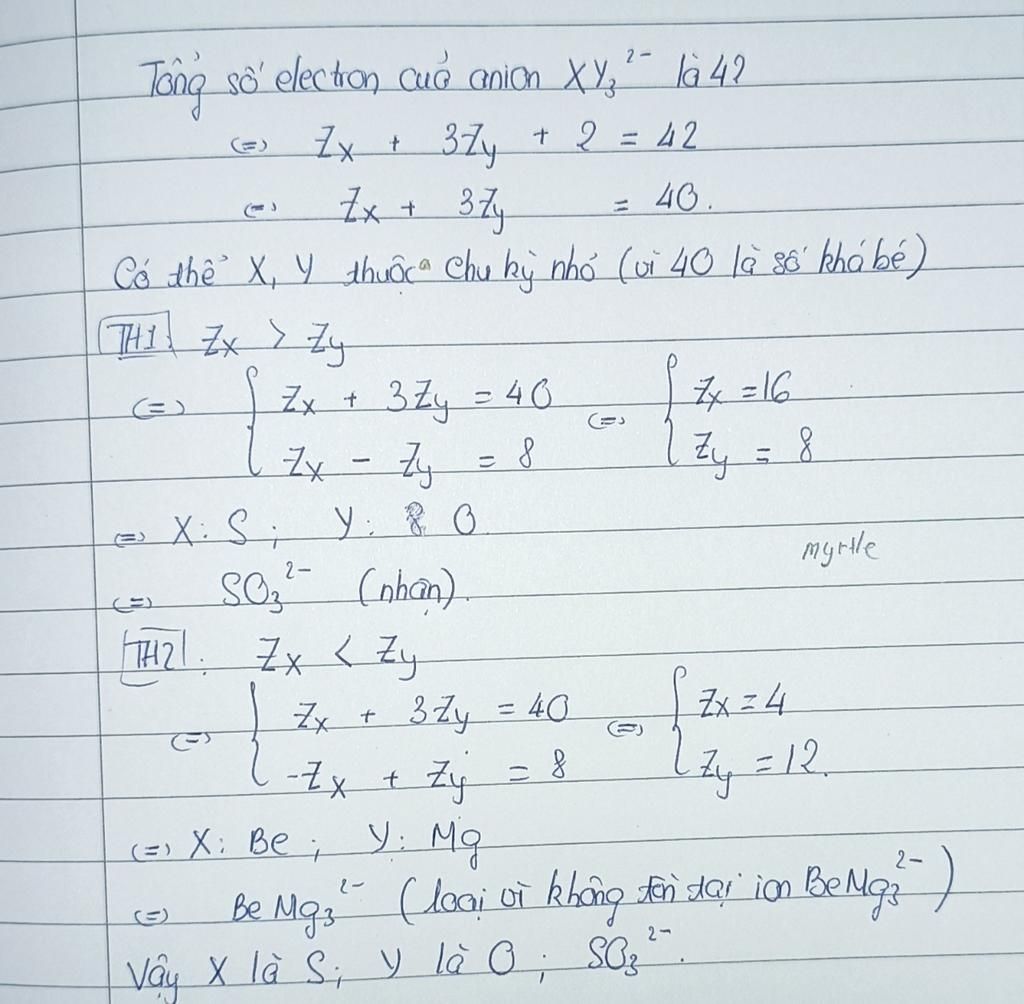 Tổng số electron của anion XY₃²⁻ là 42
(=) Zx + 3Zy + 2 = 42
(=) Zx + 3Zy = 40.
Có thể X, Y thuộc chu kỳ nhỏ (vì 40 là số khá bé)
TH1 Zx > Zy
(=) { Zx + 3Zy = 40 (=) { Zx = 16
Zx - Zy = 8 Zy = 8
(=) X: S; Y: O
myrtle
(=) SO₃²⁻ (nhận).
TH2. Zx < Zy
(=) { Zx + 3Zy = 40 (=) { Zx = 4
-Zx + Zy = 8 Zy = 12.
(=) X: Be; Y: Mg
(=) BeMg₃²⁻ (loại vì không tồn tại ion BeMg₃²⁻)
Vậy X là S; Y là O; SO₃²⁻.